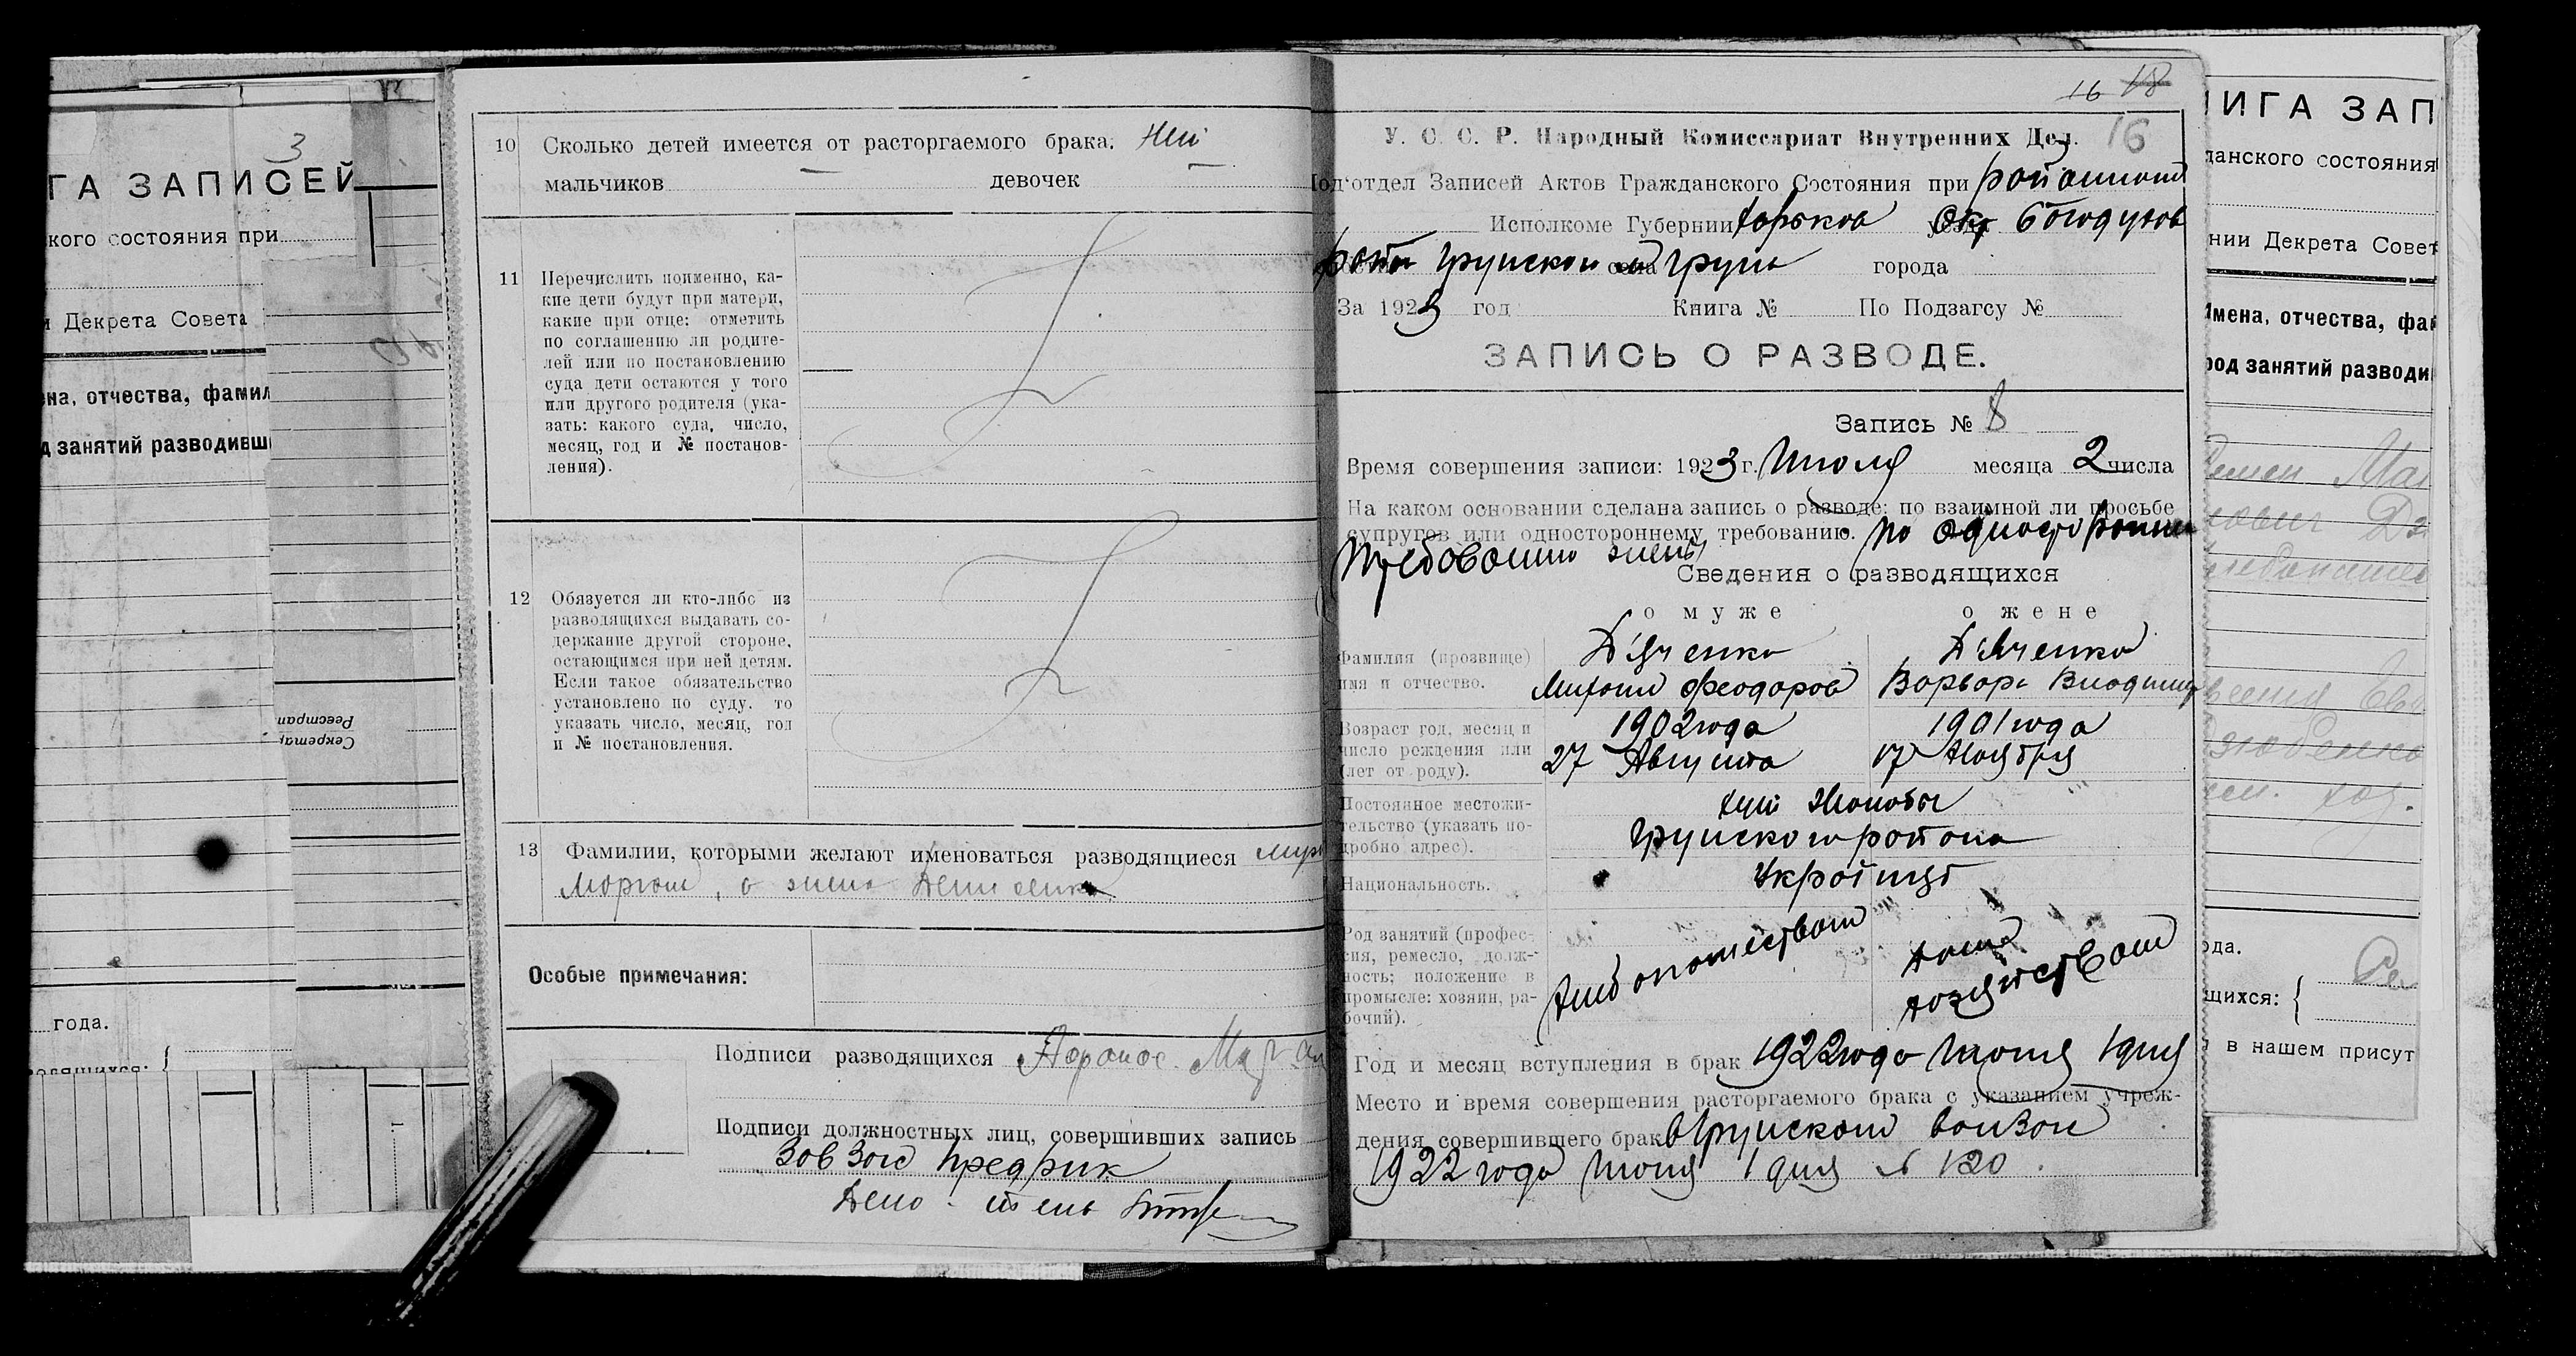 3
ГА ЗАПИСЕЙ
кого состояния при
и Декрета Совета
на, отчества, фамил
д занятий разводивш
Реестрап
Секретар
года.
10 Сколько детей имеется от расторгаемого брака. Нет
мальчиков — девочек —
11 Перечислить поименно, ка-
кие дети будут при матери,
какие при отце: отметить
по соглашению ли родите-
лей или по постановлению
суда дети остаются у того
или другого родителя (ука-
зать: какого суда, число,
месяц, год и № постанов-
ления).
12 Обязуется ли кто-либо из
разводящихся выдавать со-
держание другой стороне,
остающимся при ней детям.
Если такое обязательство
установлено по суду, то
указать число, месяц, год
и № постановления.
13 Фамилии, которыми желают именоваться разводящиеся
а жена Денисенко
Особые примечания:
Подписи разводящихся
Подписи должностных лиц, совершивших запись
Завзаг
Дело
16 18
У. С. С. Р. Народный Комиссариат Внутренних Дел. 16
Под'отдел Записей Актов Гражданского Состояния при районном
Исполкоме Губернии Харьков уезда Окр Богодухов
Грунском села Грунь города
За 1923 год Книга № По Подзагсу №
ЗАПИСЬ О РАЗВОДЕ.
Запись № 8
Время совершения записи: 1923 г. Июля месяца 2 числа
На каком основании сделана запись о разводе: по взаимной ли просьбе
супругов или одностороннему требованию. по односторонн
требованию жены
Сведения о разводящихся
о муже о жене
Фамилия (прозвище)
имя и отчество.
Дяченко Дяченко
Михаил Феодоров Варвара Владимир
Возраст год, месяц и
число рождения или
(лет от роду).
1902 года 1901 года
27 Августа 17 Ноября
Постоянное местожи-
тельство (указать по-
дробно адрес).
хут
Грунского района
Национальность.
Украинцы
Род занятий (профес-
сия, ремесло, долж-
ность; положение в
промысле: хозяин, ра-
бочий).
Хлебопашеством
Дом
хозяйством
Год и месяц вступления в брак 1922 года Июня 1 дня
Место и время совершения расторгаемого брака с указанием учреж-
дения совершившего брак в Грунском волзаге
1922 года Июня 1 дня № 120
ИГА ЗАП
данского состояния
нии Декрета Совет
Имена, отчества, фам
род занятий разводи
ода.
щихся: {
в нашем присут